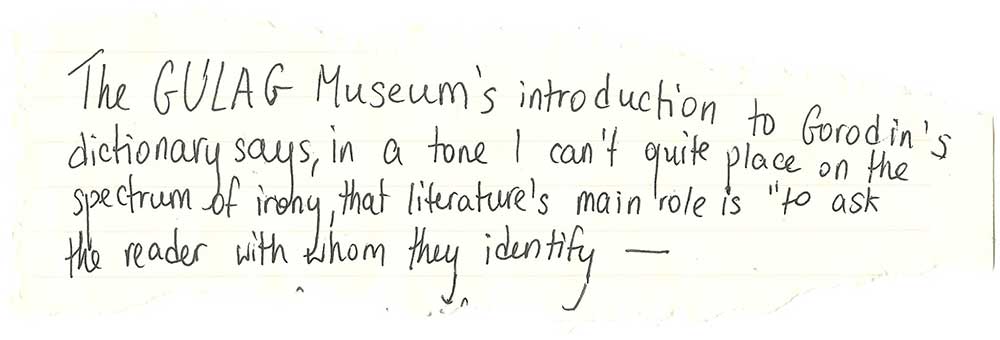 The GULAG Museum's introduction to Gorodin's
dictionary says, in a tone I can't quite place on the
spectrum of irony, that literature's main role is "to ask
the reader with whom they identify —